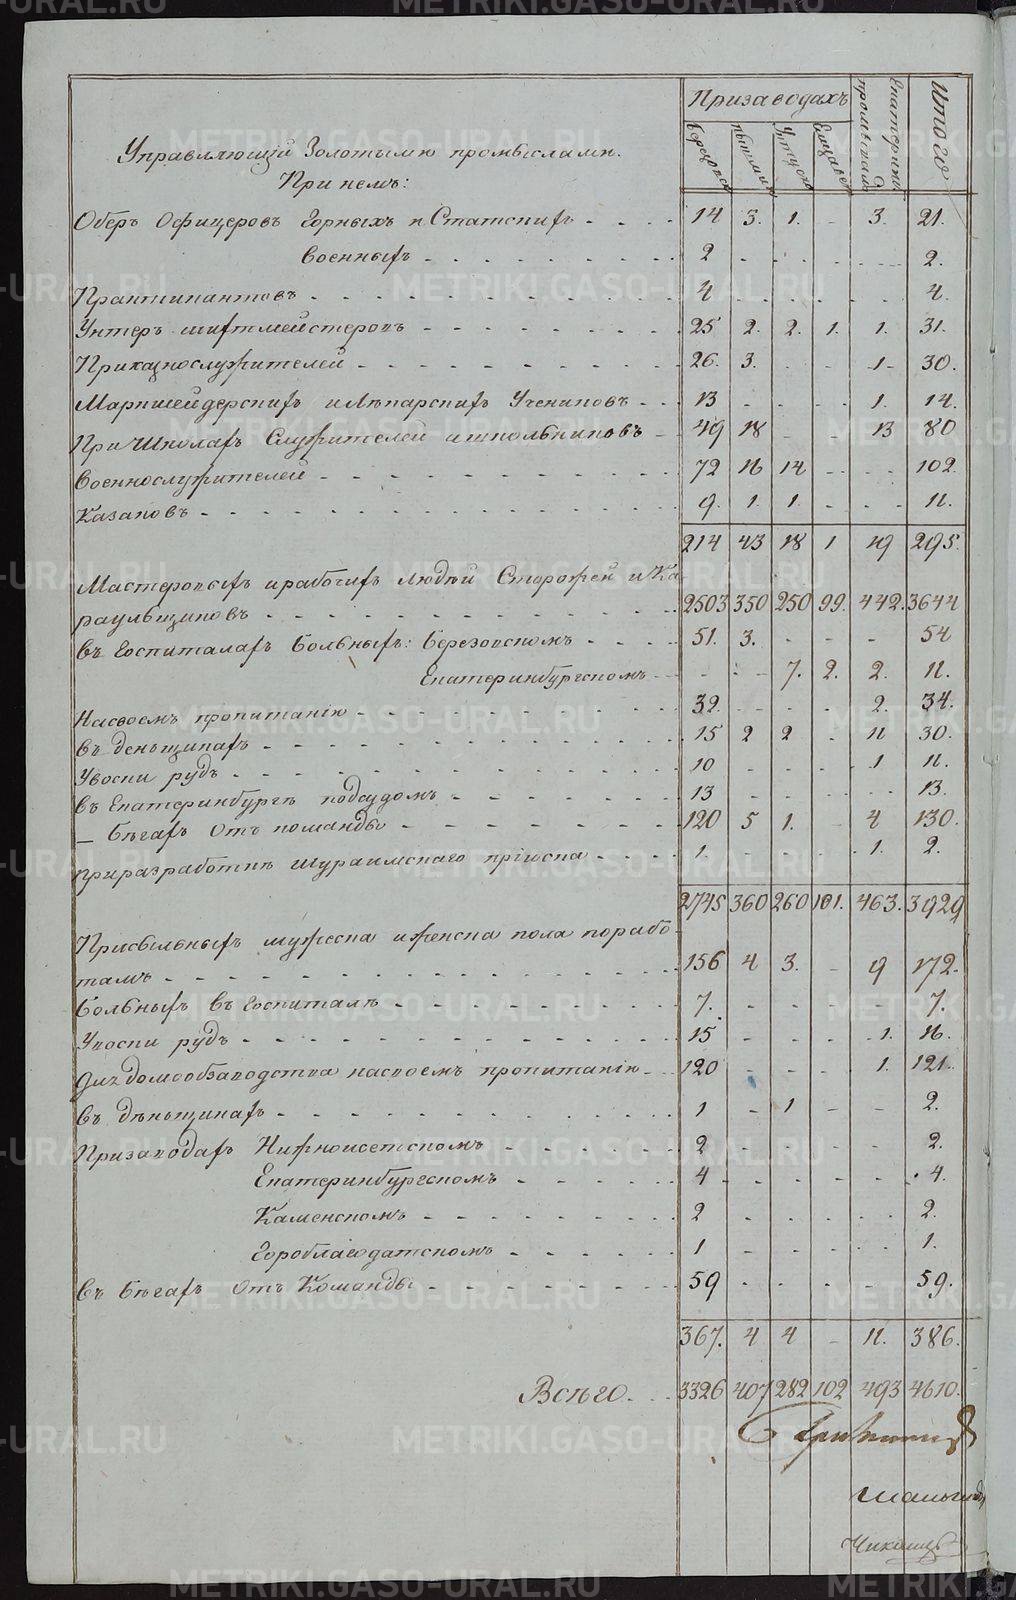 При заводахъ
Березовс
Пышмин
Уктусс
Елизавет
Екатеринб
промыслах
Итого
Управляющій Золотыми промыслами.
При немъ:
Оберъ Офицеровъ Горныхъ и Статскихъ 14 3. 1. - 3. 21.
Военныхъ 2 - - - - 2.
Практикантовъ 4 - - - - 4.
Унтеръ шихтмейстеровъ 25 2. 2. 1. 1. 31.
Приказнослужителей 26. 3. - - 1. 30.
Маркшейдерскихъ и Лѣкарскихъ Учениковъ 13 - - - 1. 14.
При Школахъ Служителей и школьниковъ 49 18 - - 13 80
Военнослужителей 72 16 14 - - 102.
Казаковъ 9. 1. 1. - - 11.
214 43 18 1 19 295.
Мастеровыхъ и рабочихъ людей Сторожей и Ка-
раульщиковъ 2503 350 250 99. 442. 3644
Въ Госпиталяхъ Больныхъ: Березовскомъ 51. 3. - - - 54
Екатеринбургскомъ - - 7. 2. 2. 11.
На своемъ пропитаніи 32. - - - 2. 34.
Въ деньщикахъ 15 2 2 - 11 30.
У воски рудъ 10 - - - 1 11.
Въ Екатеринбургѣ подсудомъ 13 - - - - 13.
— Бѣгахъ отъ команды 120 5 1. - 4 130.
При разработкѣ шураимскаго пріиска 1. - - - 1. 2.
2745 360 260 101. 463. 3929
Присыльныхъ мужеска и женска пола по рабо-
тамъ 156 4 3. - 9 172.
Больныхъ въ госпиталѣ 7. - - - - 7.
У воски рудъ 15 - - - 1. 16.
Для домообзаводства на своемъ пропитаніи 120 - - - 1. 121.
Въ дѣньщикахъ 1 - 1 - - 2.
При заводахъ Нижноисетскомъ 2 - - - - 2.
Екатеринбургскомъ 4 - - - - 4.
Каменскомъ 2 - - - - 2.
Гороблагодатскомъ 1 - - - - 1.
Въ Бѣгахъ отъ Команды 59 - - - - 59.
367. 4 4 - 11. 386.
Всѣго 3326 407 282 102 493 4610.
METRIKI.GASO-URAL.RU